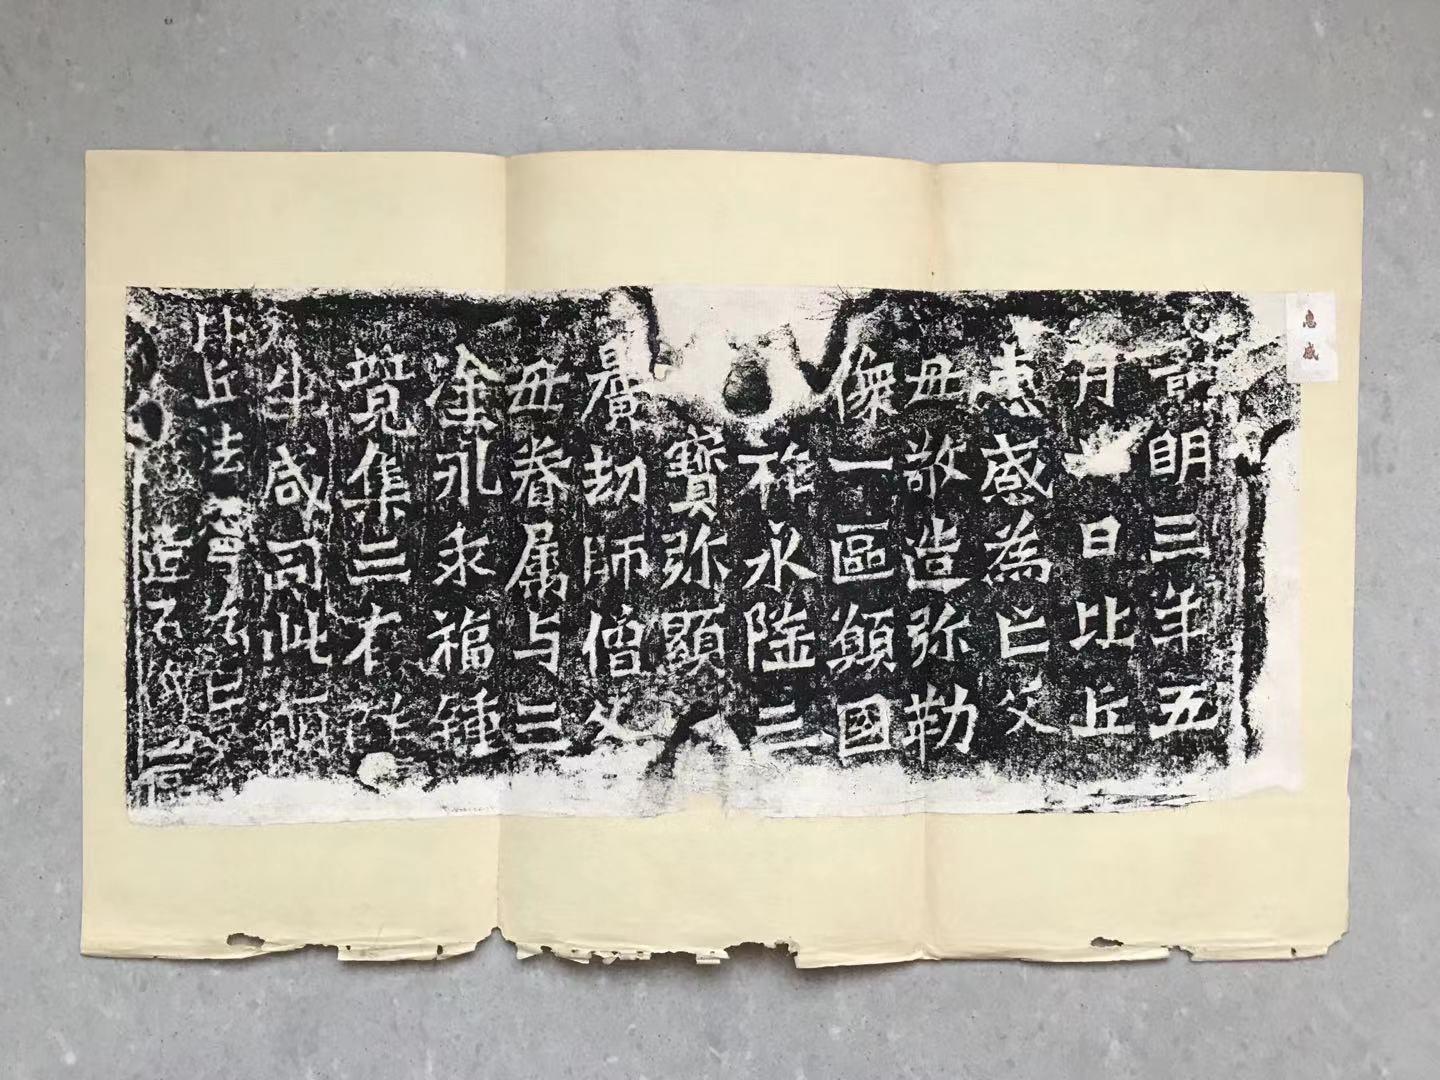 惠感
明三年五
月 日比丘
惠感為亡父
母敬造弥勒
像一區願國
祚永隆三
寶弥顯
曠劫師僧父
母眷属与三
塗永乖福鍾
競集三有群
生咸同此願
比丘法寧為亡
造石像一區